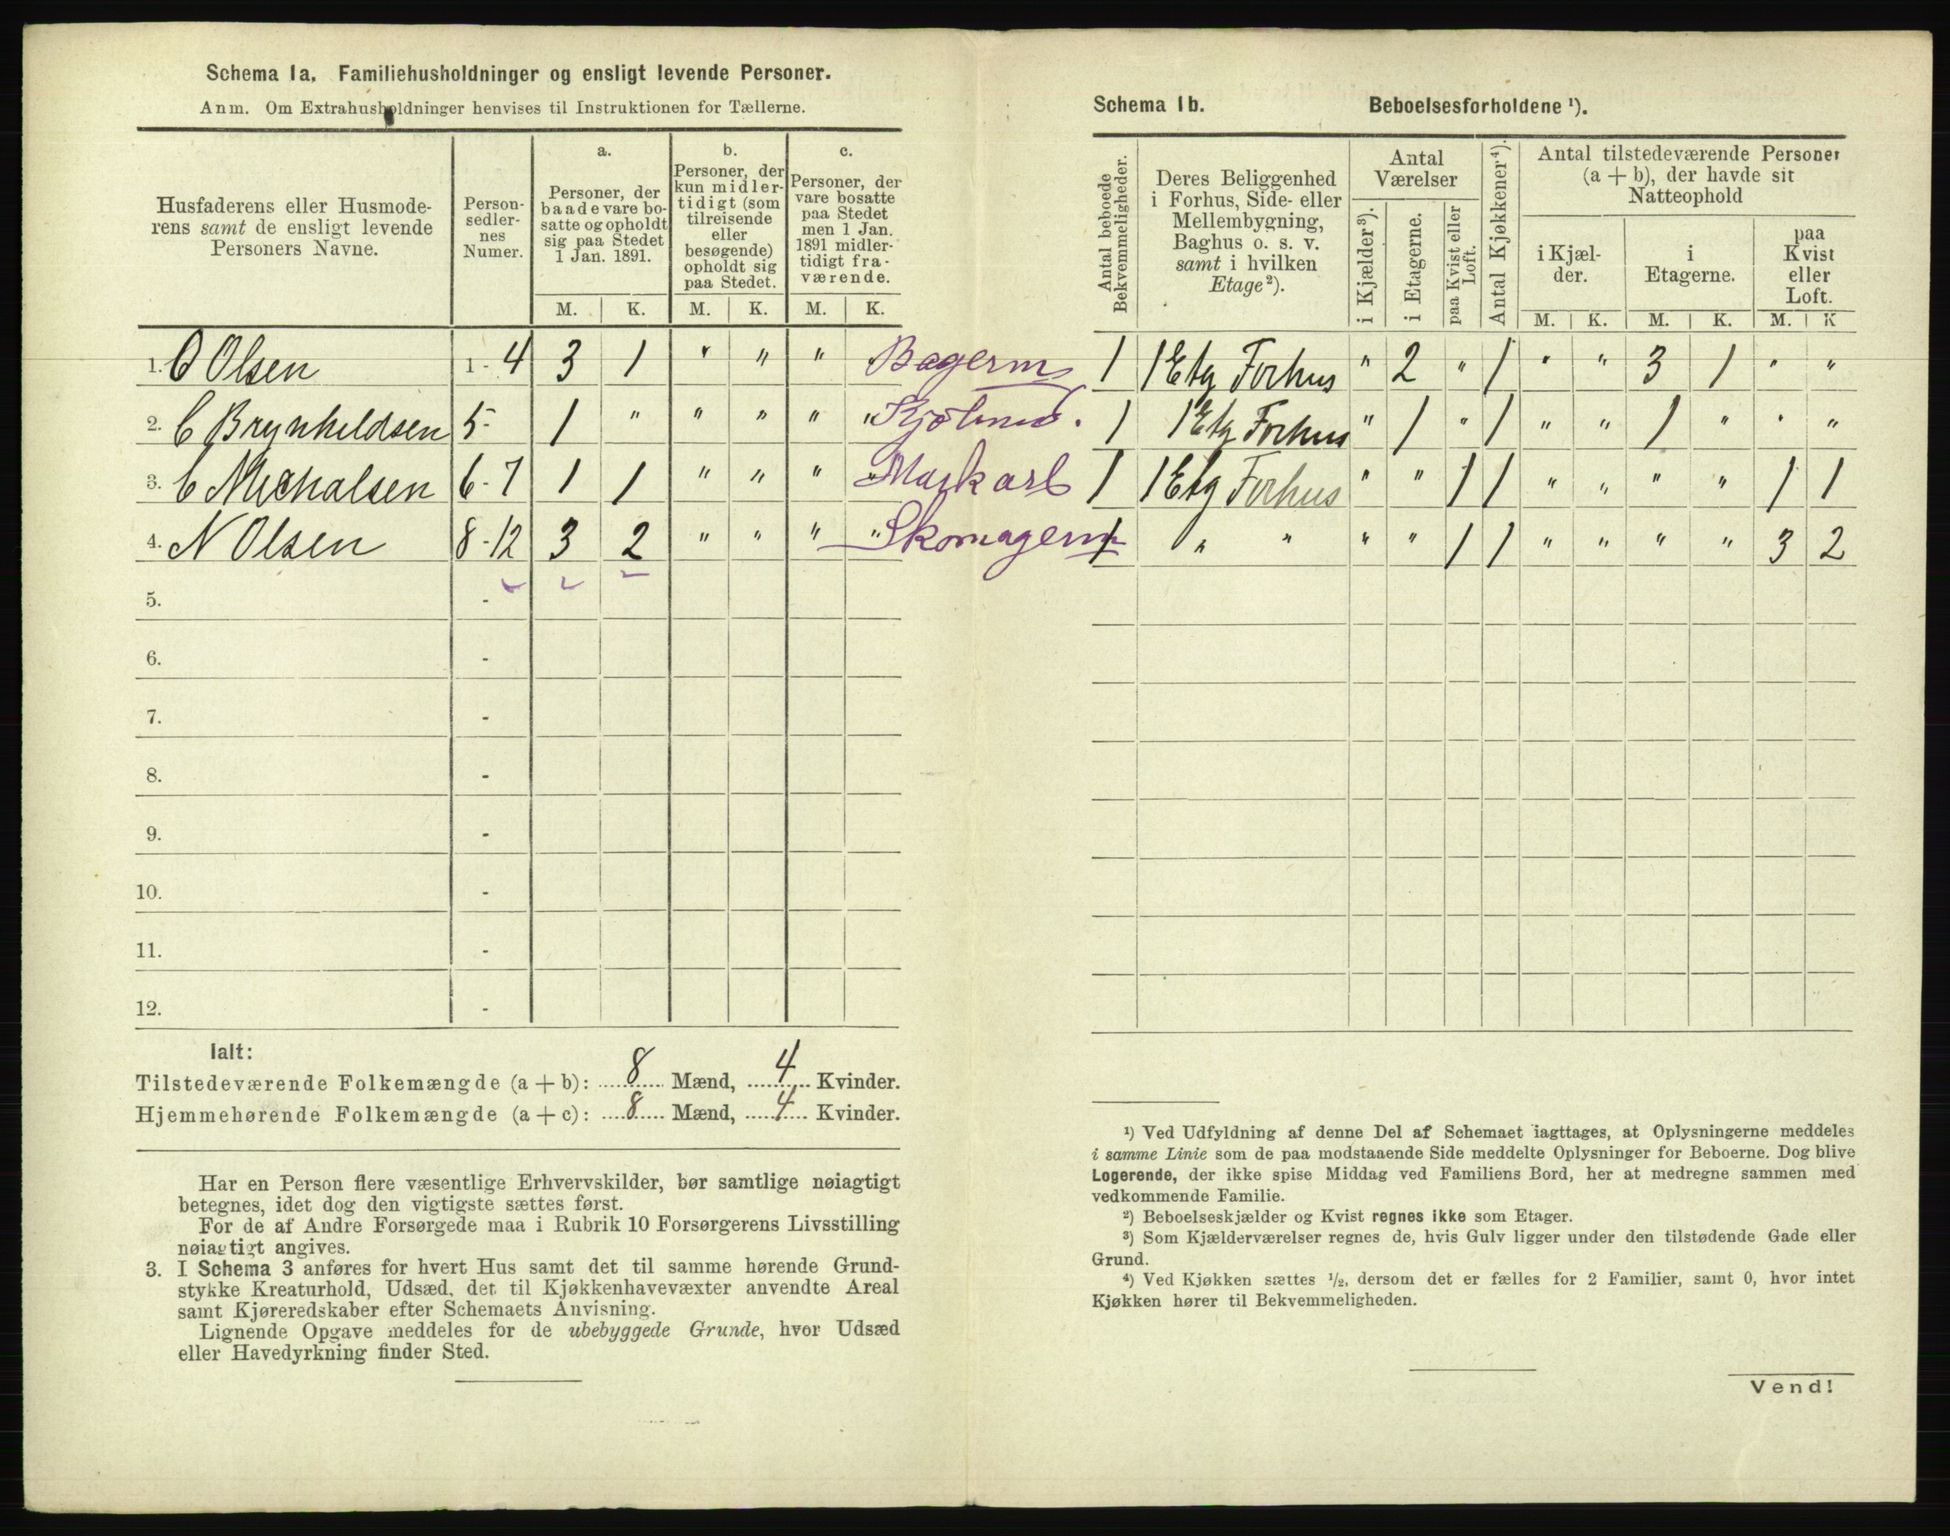 Schema 1a. Familiehusholdninger og ensligt levende Personer.
Anm. Om Extrahusholdninger henvises til Instruktionen for Tællerne.
Husfaderens eller Husmode-
rens samt de ensligt levende
Personers Navne.
Person-
sedler-
nes
Numer.
a.
Personer, der
baade vare bo-
satte og opholdt
sig paa Stedet
1 Jan. 1891.
b.
Personer, der
kun midler-
tidigt (som
tilreisende
eller
besøgende)
opholdt sig
paa Stedet.
c.
Personer, der
vare bosatte
paa Stedet
men 1 Jan.
1891 midler-
tidigt fra-
værende.
M. K. M. K. M. K.
1. O Olsen 1 - 4 3 1 " " " Bagerm
2. C Brynhildsen 5 - 1 " " " " "
3. C Michalsen 6 - 7 1 1 " " " "
4. N Olsen 8 - 12 3 2 " " " " Skomagerm
5. -
6. -
7. -
8. -
9. -
10. -
11. -
12. -
Ialt:
Tilstedeværende Folkemængde (a + b): 8 Mænd, 4 Kvinder.
Hjemmehørende Folkemængde (a + c): 8 Mænd, 4 Kvinder.
Har en Person flere væsentlige Erhvervskilder, bør samtlige nøiagtigt
betegnes, idet dog den vigtigste sættes først.
For de af Andre Forsørgede maa i Rubrik 10 Forsørgerens Livsstilling
nøiagtigt angives.
3. I Schema 3 anføres for hvert Hus samt det til samme hørende Grund-
stykke Kreaturhold, Udsæd, det til Kjøkkenhavevæxter anvendte Areal
samt Kjøreredskaber efter Schemaets Anvisning.
Lignende Opgave meddeles for de ubebyggede Grunde, hvor Udsæd
eller Havedyrkning finder Sted.
Schema 1b. Beboelsesforholdene ¹).
Antal beboede
Bekvemmeligheder.
Deres Beliggenhed
i Forhus, Side- eller
Mellembygning,
Baghus o. s. v.
samt i hvilken
Etage ²).
Antal
Værelser
i Kjælder ³).
i Etagerne.
paa Kvist eller
Loft.
Antal Kjøkkener ⁴).
Antal tilstedeværende Personer
(a + b), der havde sit
Natteophold
i Kjæl-
der.
i
Etagerne.
paa
Kvist
eller
Loft.
M. K. M. K. M. K
1 1 Etg Forhus " 2 " 1 " " 3 1 " "
1 1 Etg Forhus " 1 " 1 " " 1 " " "
1 1 Etg Forhus " " 1 1 " " " " 1 1
1 " " " " 1 1 " " " " 3 2
¹) Ved Udfyldning af denne Del af Schemaet iagttages, at Oplysningerne meddeles
i samme Linie som de paa modstaaende Side meddelte Oplysninger for Beboerne. Dog blive
Logerende, der ikke spise Middag ved Familiens Bord, her at medregne sammen med
vedkommende Familie.
²) Beboelseskjælder og Kvist regnes ikke som Etager.
³) Som Kjælderværelser regnes de, hvis Gulv ligger under den tilstødende Gade eller
Grund.
⁴) Ved Kjøkken sættes ½, dersom det er fælles for 2 Familier, samt 0, hvor intet
Kjøkken hører til Bekvemmeligheden.
Vend!